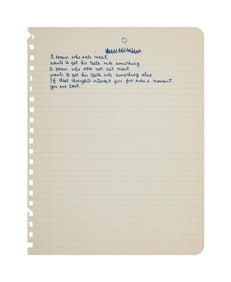 A person who eats meat
wants to get his teeth into something
A person who does not eat meat
wants to get his teeth into something else
If these thoughts interest you for even a moment
you are lost